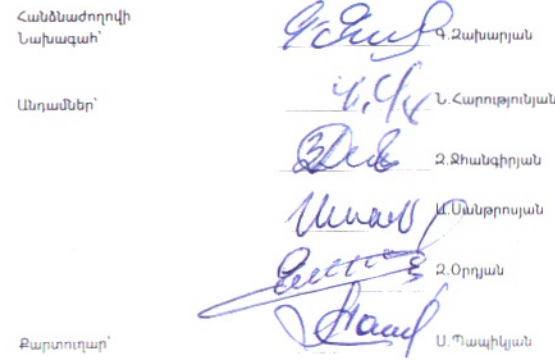 Հանձնաժողովի
Նախագահ՝ Գ.Զախարյան
Անդամներ՝ Ն.Հարությունյան
Զ.Ջհանգիրյան
Ա.Սանթրոսյան
Զ.Օրդյան
Քարտուղար՝ Ս.Պապիկյան